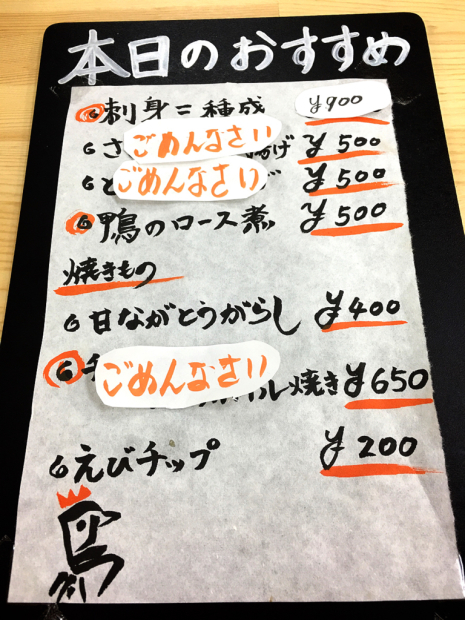 本日のおすすめ
刺身二種盛 ¥900
さ ごめんなさい 揚げ ¥500
と ごめんなさい ¥500
鴨のロース煮 ¥500
焼きもの
甘ながとうがらし ¥400
ごめんなさい 焼き ¥650
えびチップ ¥200